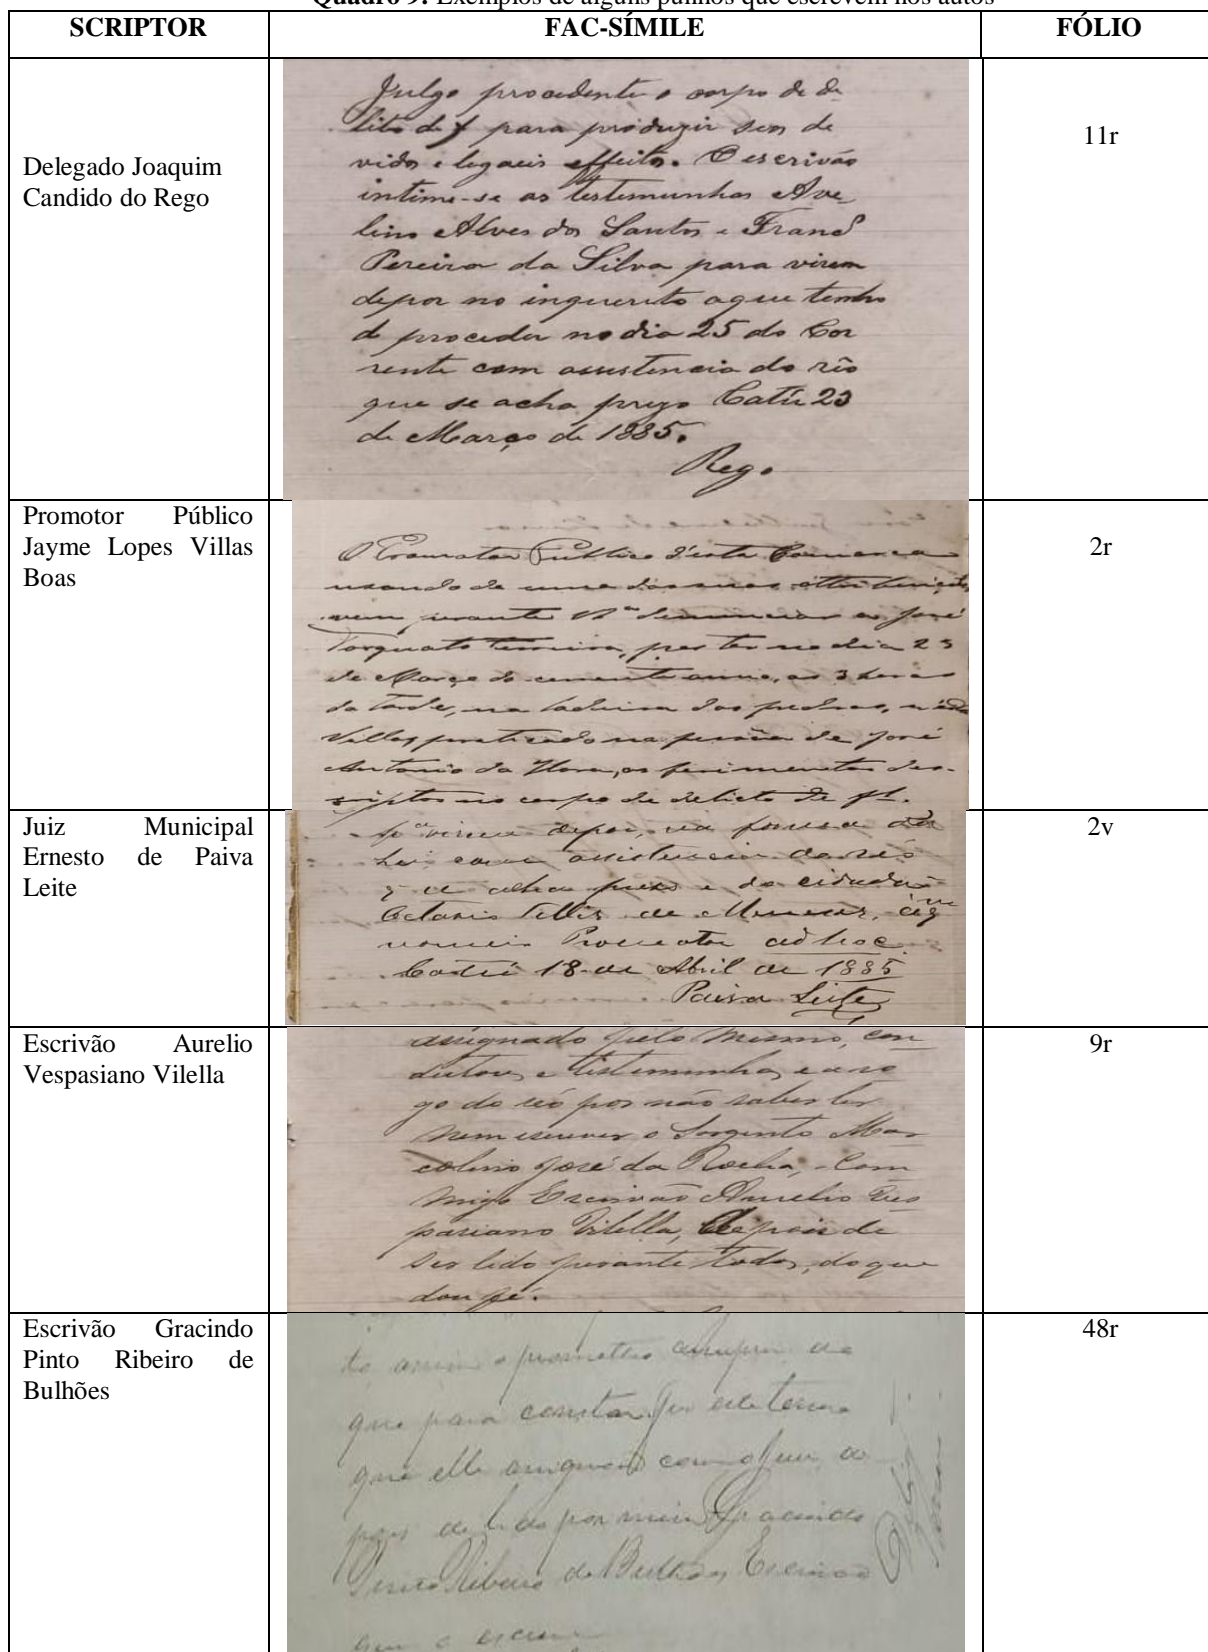 Quadro 9: Exemplos de alguns punhos que escrevem nos autos
SCRIPTOR FAC-SÍMILE FÓLIO
Delegado Joaquim
Candido do Rego
Julgo procedente o corpo de de
lito de f para produzir seos de
vidos e legaeis effeitos. O escrivão
intime-se as testemunhas Ave_
lino Alves dos Santos e Francº
Pereira da Silva para virem
depor no inquerito aque tenho
de proceder no dia 25 do Cor
rente com assistencia do réo
que se acha prezo Catú 23
de Março de 1885.
Rego
11r
Promotor Público
Jayme Lopes Villas
Boas
O Promotor Publico d'esta Comarca
usando de uma das suas attribuições
vem perante Vª denunciar a José
Torquato Ferreira, por ter no dia 23
de Março do corrente anno, as 3 horas
da tarde, na ladeira das pedras, n'esta
Villa, praticado na pessôa de José
Antonio da Hora, os ferimentos des-
criptos no corpo de delicto de fl.
2r
Juiz Municipal
Ernesto de Paiva
Leite
pª virem depor, na forma da
Lei com assistencia do réo
q se acha preso e do cidadão
Octavio Telles de Menezes, aqm
nomeio Promotor ad hoc
Catú 18 de Abril de 1885
Paiva Leite
2v
Escrivão Aurelio
Vespasiano Vilella
assignado pelo mesmo, con
ductores, e testemunhas, e a ro
go do réo por não saber ler
nem escrever o Sargento Mar
colino José da Rocha, Com
migo Escrivão Aurelio Ves
pasiano Vilella, depois de
ser lido perante todos, do que
dou fé.
9r
Escrivão Gracindo
Pinto Ribeiro de
Bulhões
to assim o prometteo cumprir do
que para constar fiz este termo
que elle assignou com o Juiz de
pois de lido por mim Gracindo
Pinto Ribeiro de Bulhões Escrivão
que o escrevi
48r